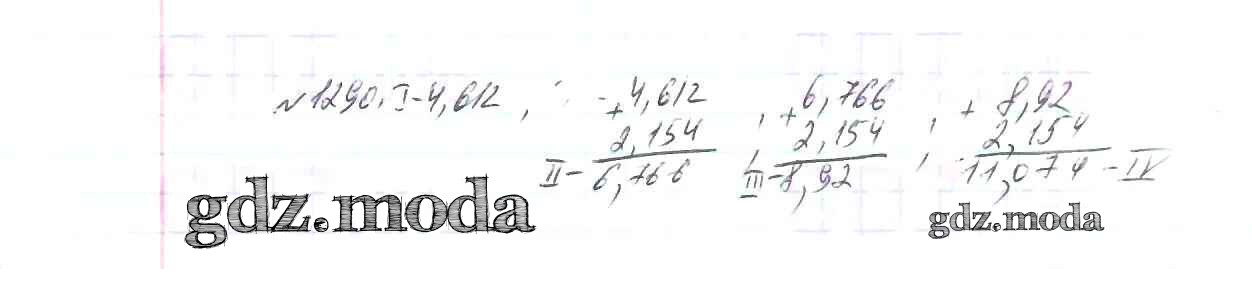 №1290. I-4,612, +4,612, +6,766, +8,92
2,154 2,154 2,154
II-6,766 III-8,92 11,074-IV
gdz.moda
gdz.moda